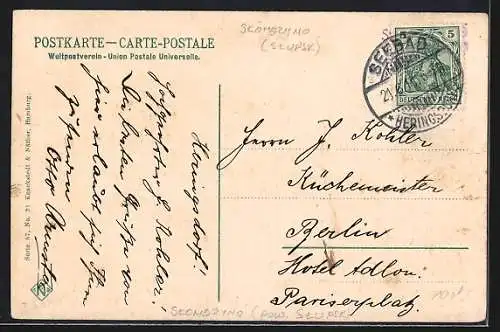 POSTKARTE — CARTE-POSTALE
Weltpostverein - Union Postale Universelle.
SKÓMBZYNO
(SŁUPSK)
SEEBAD
HERINGSD
5
DEUTSCHES REICH
Herrn J. Kohler
Küchenmeister
Berlin
Hotel Adlon.
Pariserplatz.
Heringsdorf.
Sehr geehrter H. Kohler!
Die besten Grüße von
hier erlaubt sich Ihnen
zu senden
Otto
Serie 57, No. 21 Knackstedt & Näther, Hamburg.
SKOMBZYNO (POW. SŁUPSK)